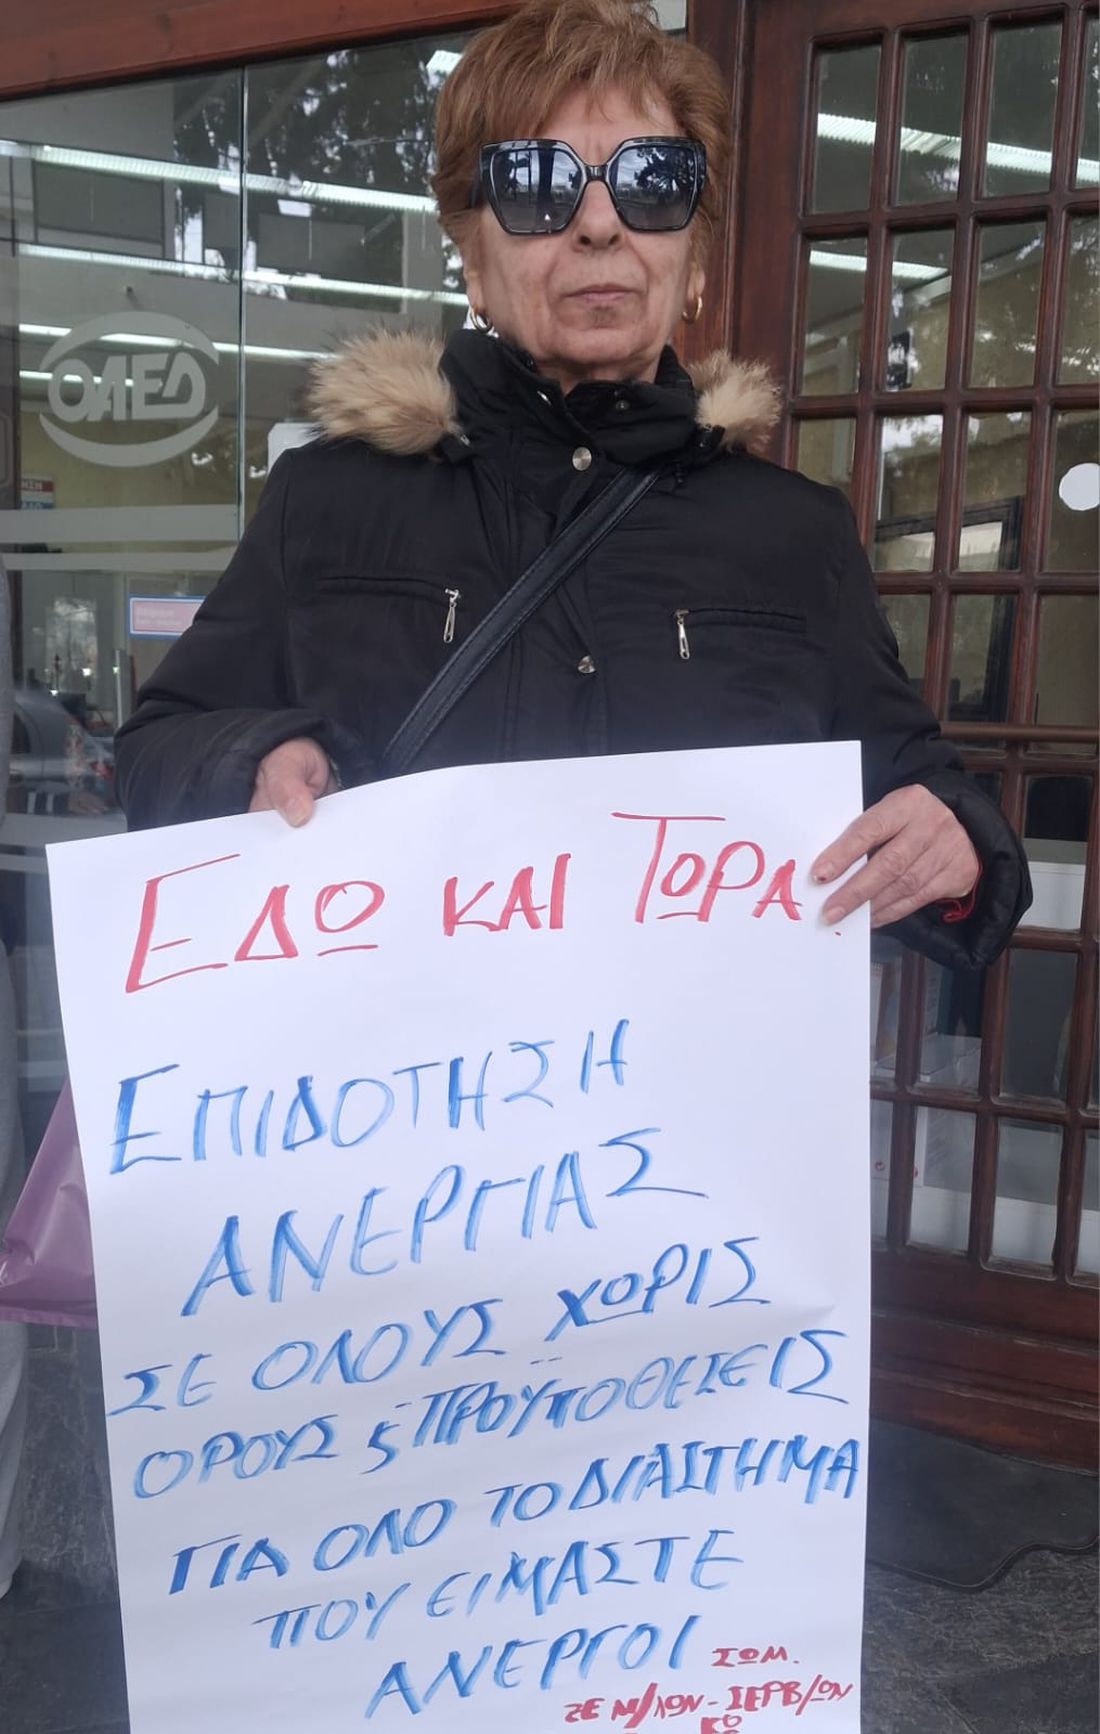 ΟΑΕΔ
ΕΔΩ ΚΑΙ ΤΩΡΑ
ΕΠΙΔΟΤΗΣΗ
ΑΝΕΡΓΙΑΣ
ΣΕ ΟΛΟΥΣ ΧΩΡΙΣ
ΟΡΟΥΣ ς ΠΡΟΫΠΟΘΕΣΕΙΣ
ΓΙΑ ΟΛΟ ΤΟ ΔΙΑΣΤΗΜΑ
ΠΟΥ ΕΙΜΑΣΤΕ
ΑΝΕΡΓΟΙ
ΣΩΜ.
ΞΕΝ/ΛΩΝ-ΣΕΡΒ/ΩΝ
ΚΩ